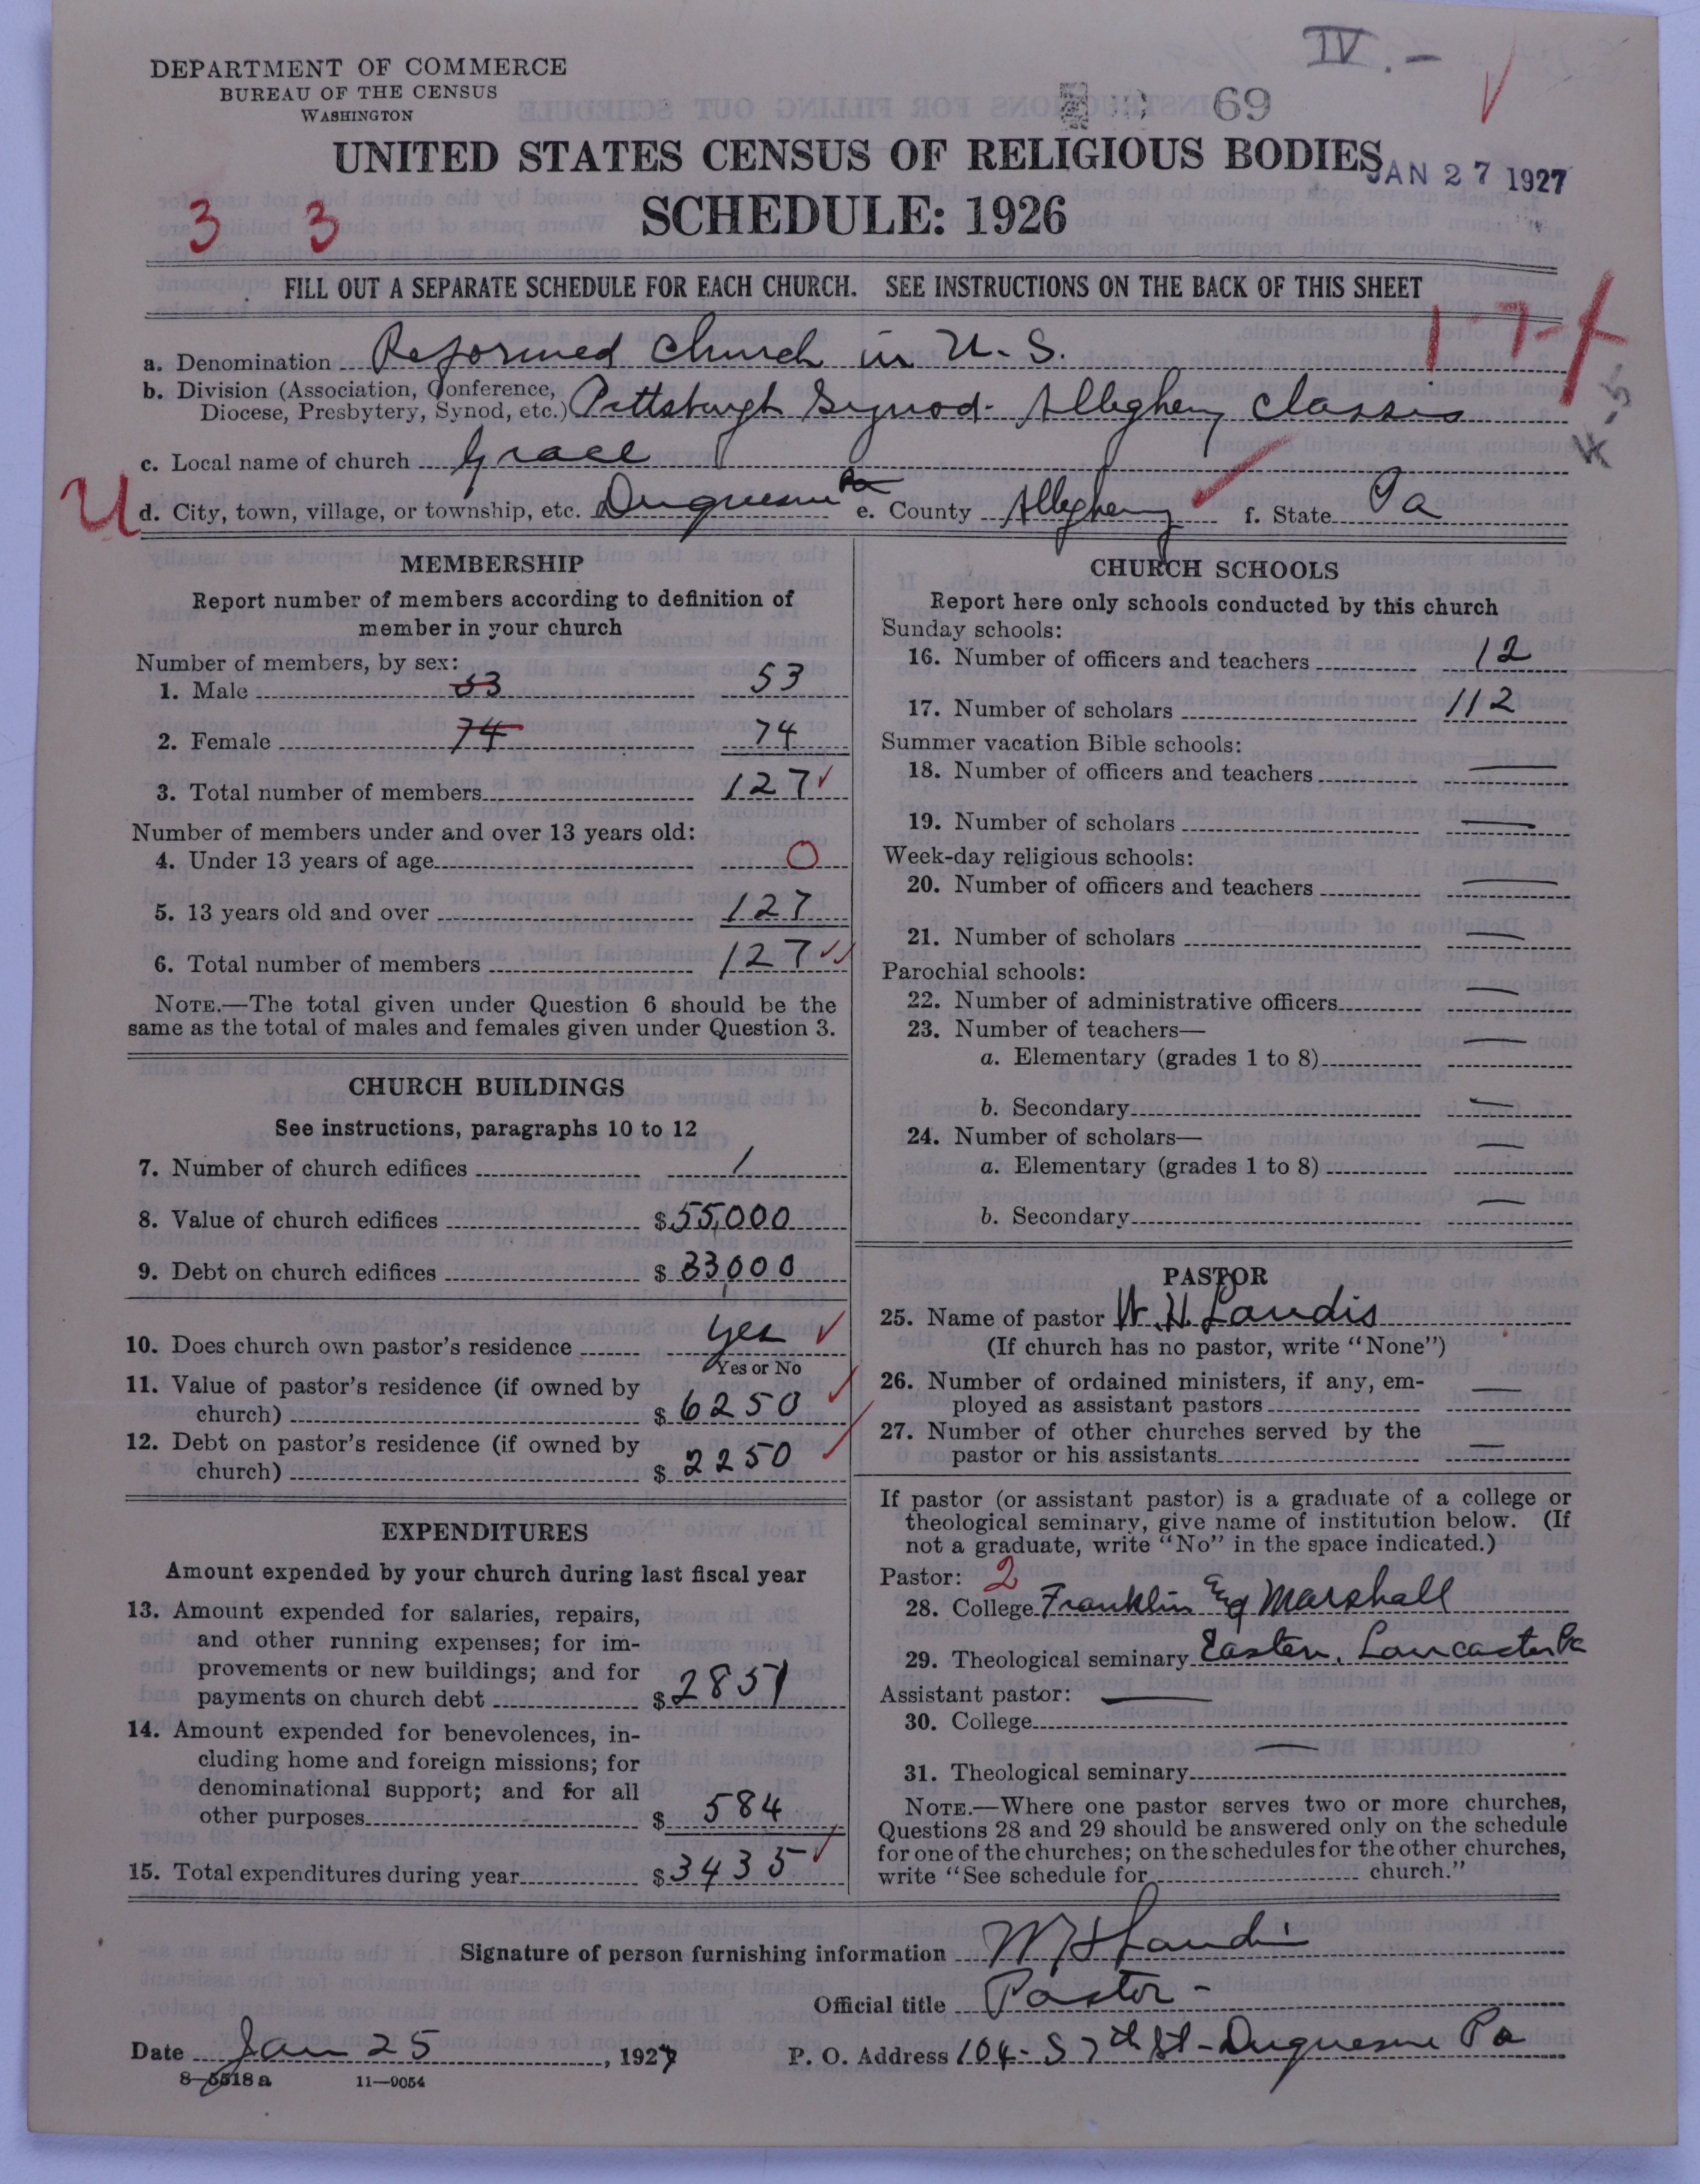 IV.-
DEPARTMENT OF COMMERCE
BUREAU OF THE CENSUS
WASHINGTON
69
UNITED STATES CENSUS OF RELIGIOUS BODIES
JAN 27 1927
SCHEDULE: 1926
3 3
FILL OUT A SEPARATE SCHEDULE FOR EACH CHURCH. SEE INSTRUCTIONS ON THE BACK OF THIS SHEET
a. Denomination Reformed Church in U.S.
b. Division (Association, Conference, Diocese, Presbytery, Synod, etc.) Pittsburgh Synod - Allegheny Classis
c. Local name of church Grace
U
d. City, town, village, or township, etc. Duquesne Pa e. County Allegheny f. State Pa
MEMBERSHIP
Report number of members according to definition of
member in your church
Number of members, by sex:
1. Male 53 53
2. Female 74 74
3. Total number of members 127
Number of members under and over 13 years old:
4. Under 13 years of age O
5. 13 years old and over 127
6. Total number of members 127
NOTE.—The total given under Question 6 should be the
same as the total of males and females given under Question 3.
CHURCH BUILDINGS
See instructions, paragraphs 10 to 12
7. Number of church edifices 1
8. Value of church edifices $55,000
9. Debt on church edifices $33,000
10. Does church own pastor's residence yes
Yes or No
11. Value of pastor's residence (if owned by
church) $6250
12. Debt on pastor's residence (if owned by
church) $2250
EXPENDITURES
Amount expended by your church during last fiscal year
13. Amount expended for salaries, repairs,
and other running expenses; for im-
provements or new buildings; and for
payments on church debt $2851
14. Amount expended for benevolences, in-
cluding home and foreign missions; for
denominational support; and for all
other purposes $584
15. Total expenditures during year $3435
CHURCH SCHOOLS
Report here only schools conducted by this church
Sunday schools:
16. Number of officers and teachers 12
17. Number of scholars 112
Summer vacation Bible schools:
18. Number of officers and teachers —
19. Number of scholars —
Week-day religious schools:
20. Number of officers and teachers —
21. Number of scholars —
Parochial schools:
22. Number of administrative officers —
23. Number of teachers—
a. Elementary (grades 1 to 8) —
b. Secondary —
24. Number of scholars—
a. Elementary (grades 1 to 8) —
b. Secondary —
PASTOR
25. Name of pastor W. H. Landis
(If church has no pastor, write "None")
26. Number of ordained ministers, if any, em-
ployed as assistant pastors —
27. Number of other churches served by the
pastor or his assistants —
If pastor (or assistant pastor) is a graduate of a college or
theological seminary, give name of institution below. (If
not a graduate, write "No" in the space indicated.)
Pastor: 2
28. College Franklin & Marshall
29. Theological seminary Eastern, Lancaster Pa
Assistant pastor: —
30. College
31. Theological seminary —
NOTE.—Where one pastor serves two or more churches,
Questions 28 and 29 should be answered only on the schedule
for one of the churches; on the schedules for the other churches,
write "See schedule for church."
Signature of person furnishing information W H Landis
Official title Pastor -
Date Jan 25, 1927 P. O. Address 104 - S 7th St - Duquesne Pa
8-5518a 11—9054